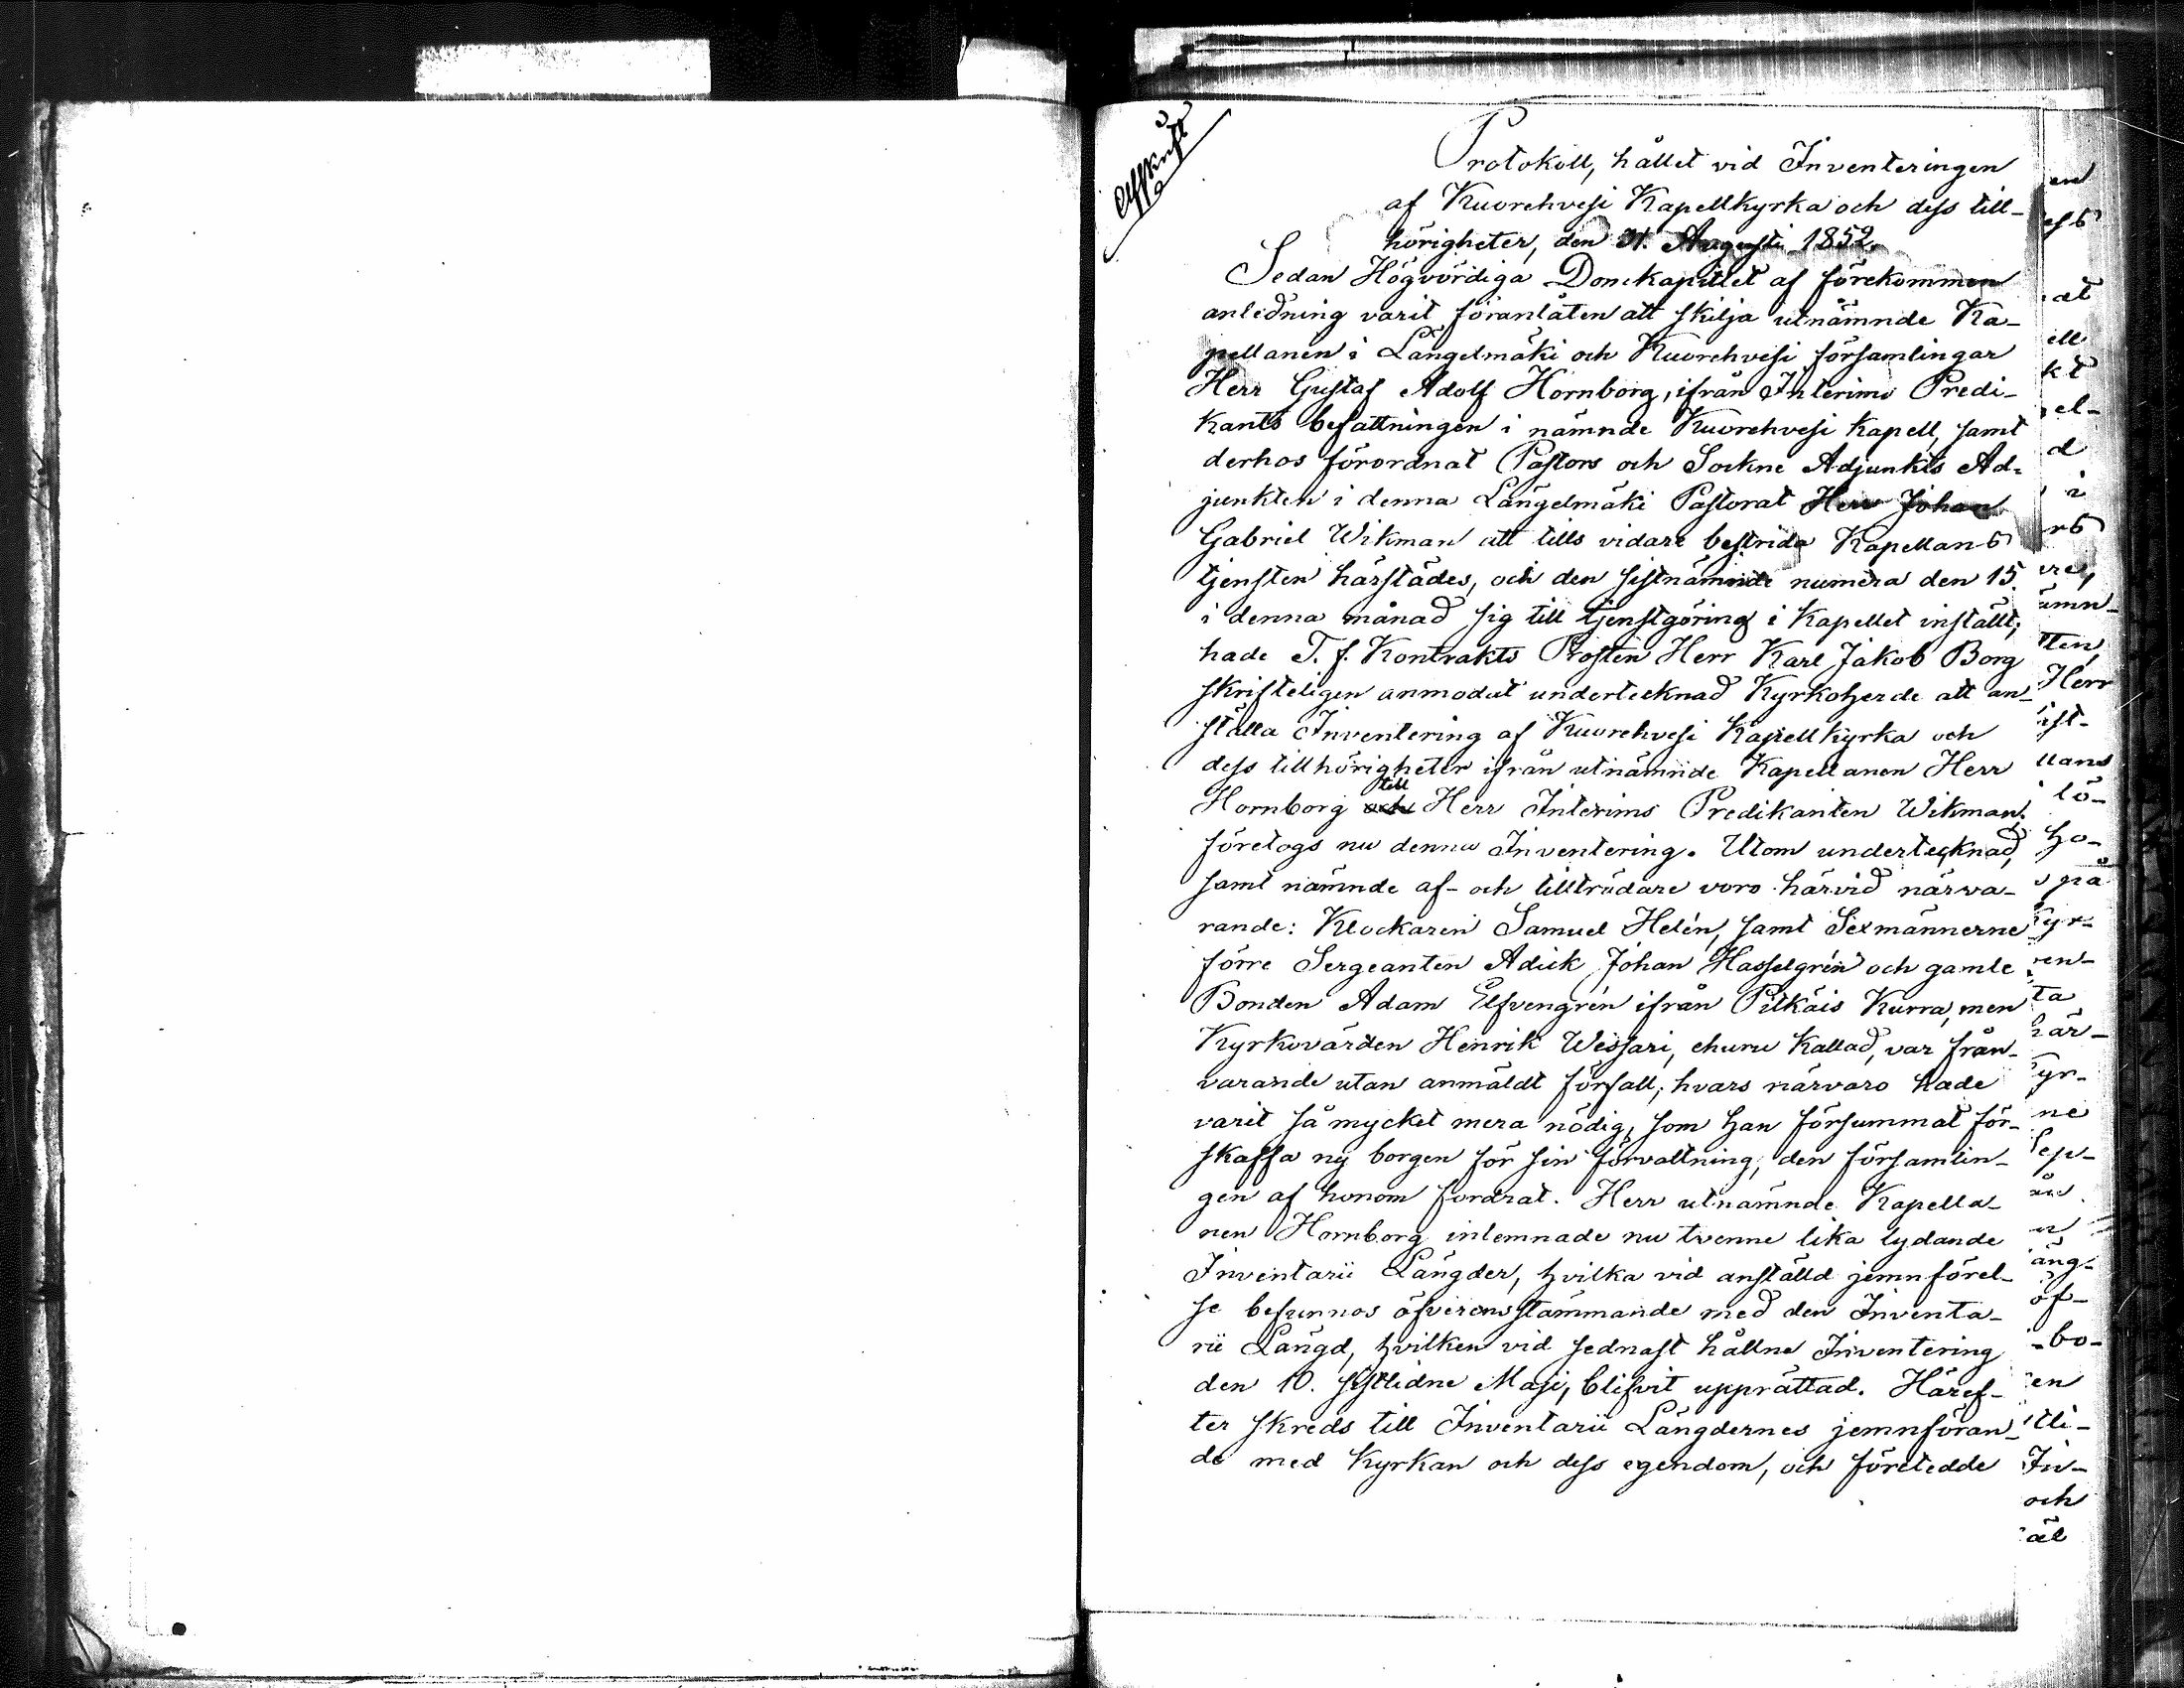 Afskrift
Protokoll, hållet vid Inventeringen
af Kuorehvesi Kapellkyrka och dess till-
hörigheter, den 31. Augusti 1852.
Sedan Högvördiga Domkapitlet af förekommen
anledning varit föranlåten att skilja utnämnde Ka-
pellanen i Längelmäki och Kuorehvesi församlingar
Herr Gustaf Adolf Hornborg, ifrån Interims Predi-
kants befattningen i nämnde Kuorehvesi Kapell, samt
derhos förordnat Pastors och Sockne Adjunkts Ad-
junkten i denna Längelmäki Pastorat Herr Johan
Gabriel Wikman att tills vidare bestrida Kapellans
tjensten härstädes, och den sistnämnde numera den 15.
i denna månad sig till tjenstgöring i Kapellet inställt;
hade T. f. Kontrakts Prosten Herr Karl Jakob Borg
skrifteligen anmodat undertecknad Kyrkoherde att an-
ställa Inventering af Kuorehvesi Kapellkyrka och
dess tillhörigheter ifrån utnämnde Kapellanen Herr
Hornborg och till Herr Interims Predikanten Wikman,
företogs nu denna Inventering. Utom undertecknad,
samt nämnde af- och tillträdare voro härvid närva-
rande: Klockaren Samuel Helén, samt Sexmännerne
förre Sergeanten Adiek Johan Hasselgrén och gamle
Bonden Adam Elfvengrén ifrån Pitkäis Kurra, men
Kyrkovärden Henrik Wessari, ehuru kallad, var från-
varande utan anmäldt förfall; hvars närvaro hade
varit så mycket mera nödig, som han försummat för-
skaffa ny borgen för sin förvaltning, den församlin-
gen af honom fordrat. Herr utnämnde Kapella-
nen Hornborg inlemnade nu tvenne lika lydande
Inventarii Längder, hvilka vid anställd jemnförel-
se befunnos öfverensstämmande med den Inventa-
rii Längd, hvilken vid sednast hållne Inventering
den 10. sistlidne Maji, blifvit upprättad. Häref-
ter skreds till Inventarii Längdernes jemnföran-
de med Kyrkan och dess egendom, och företedde